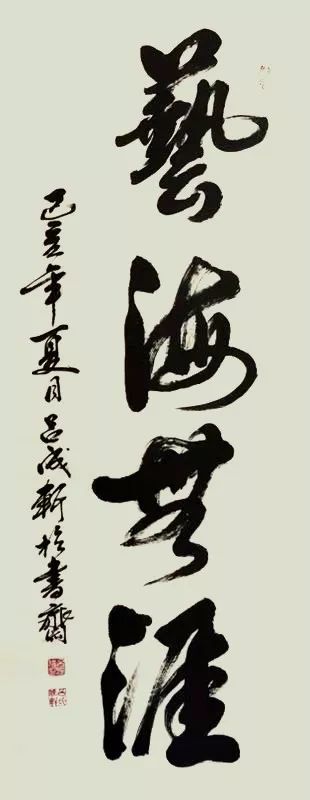 藝海無涯
己亥年夏月吕成斬於書齋